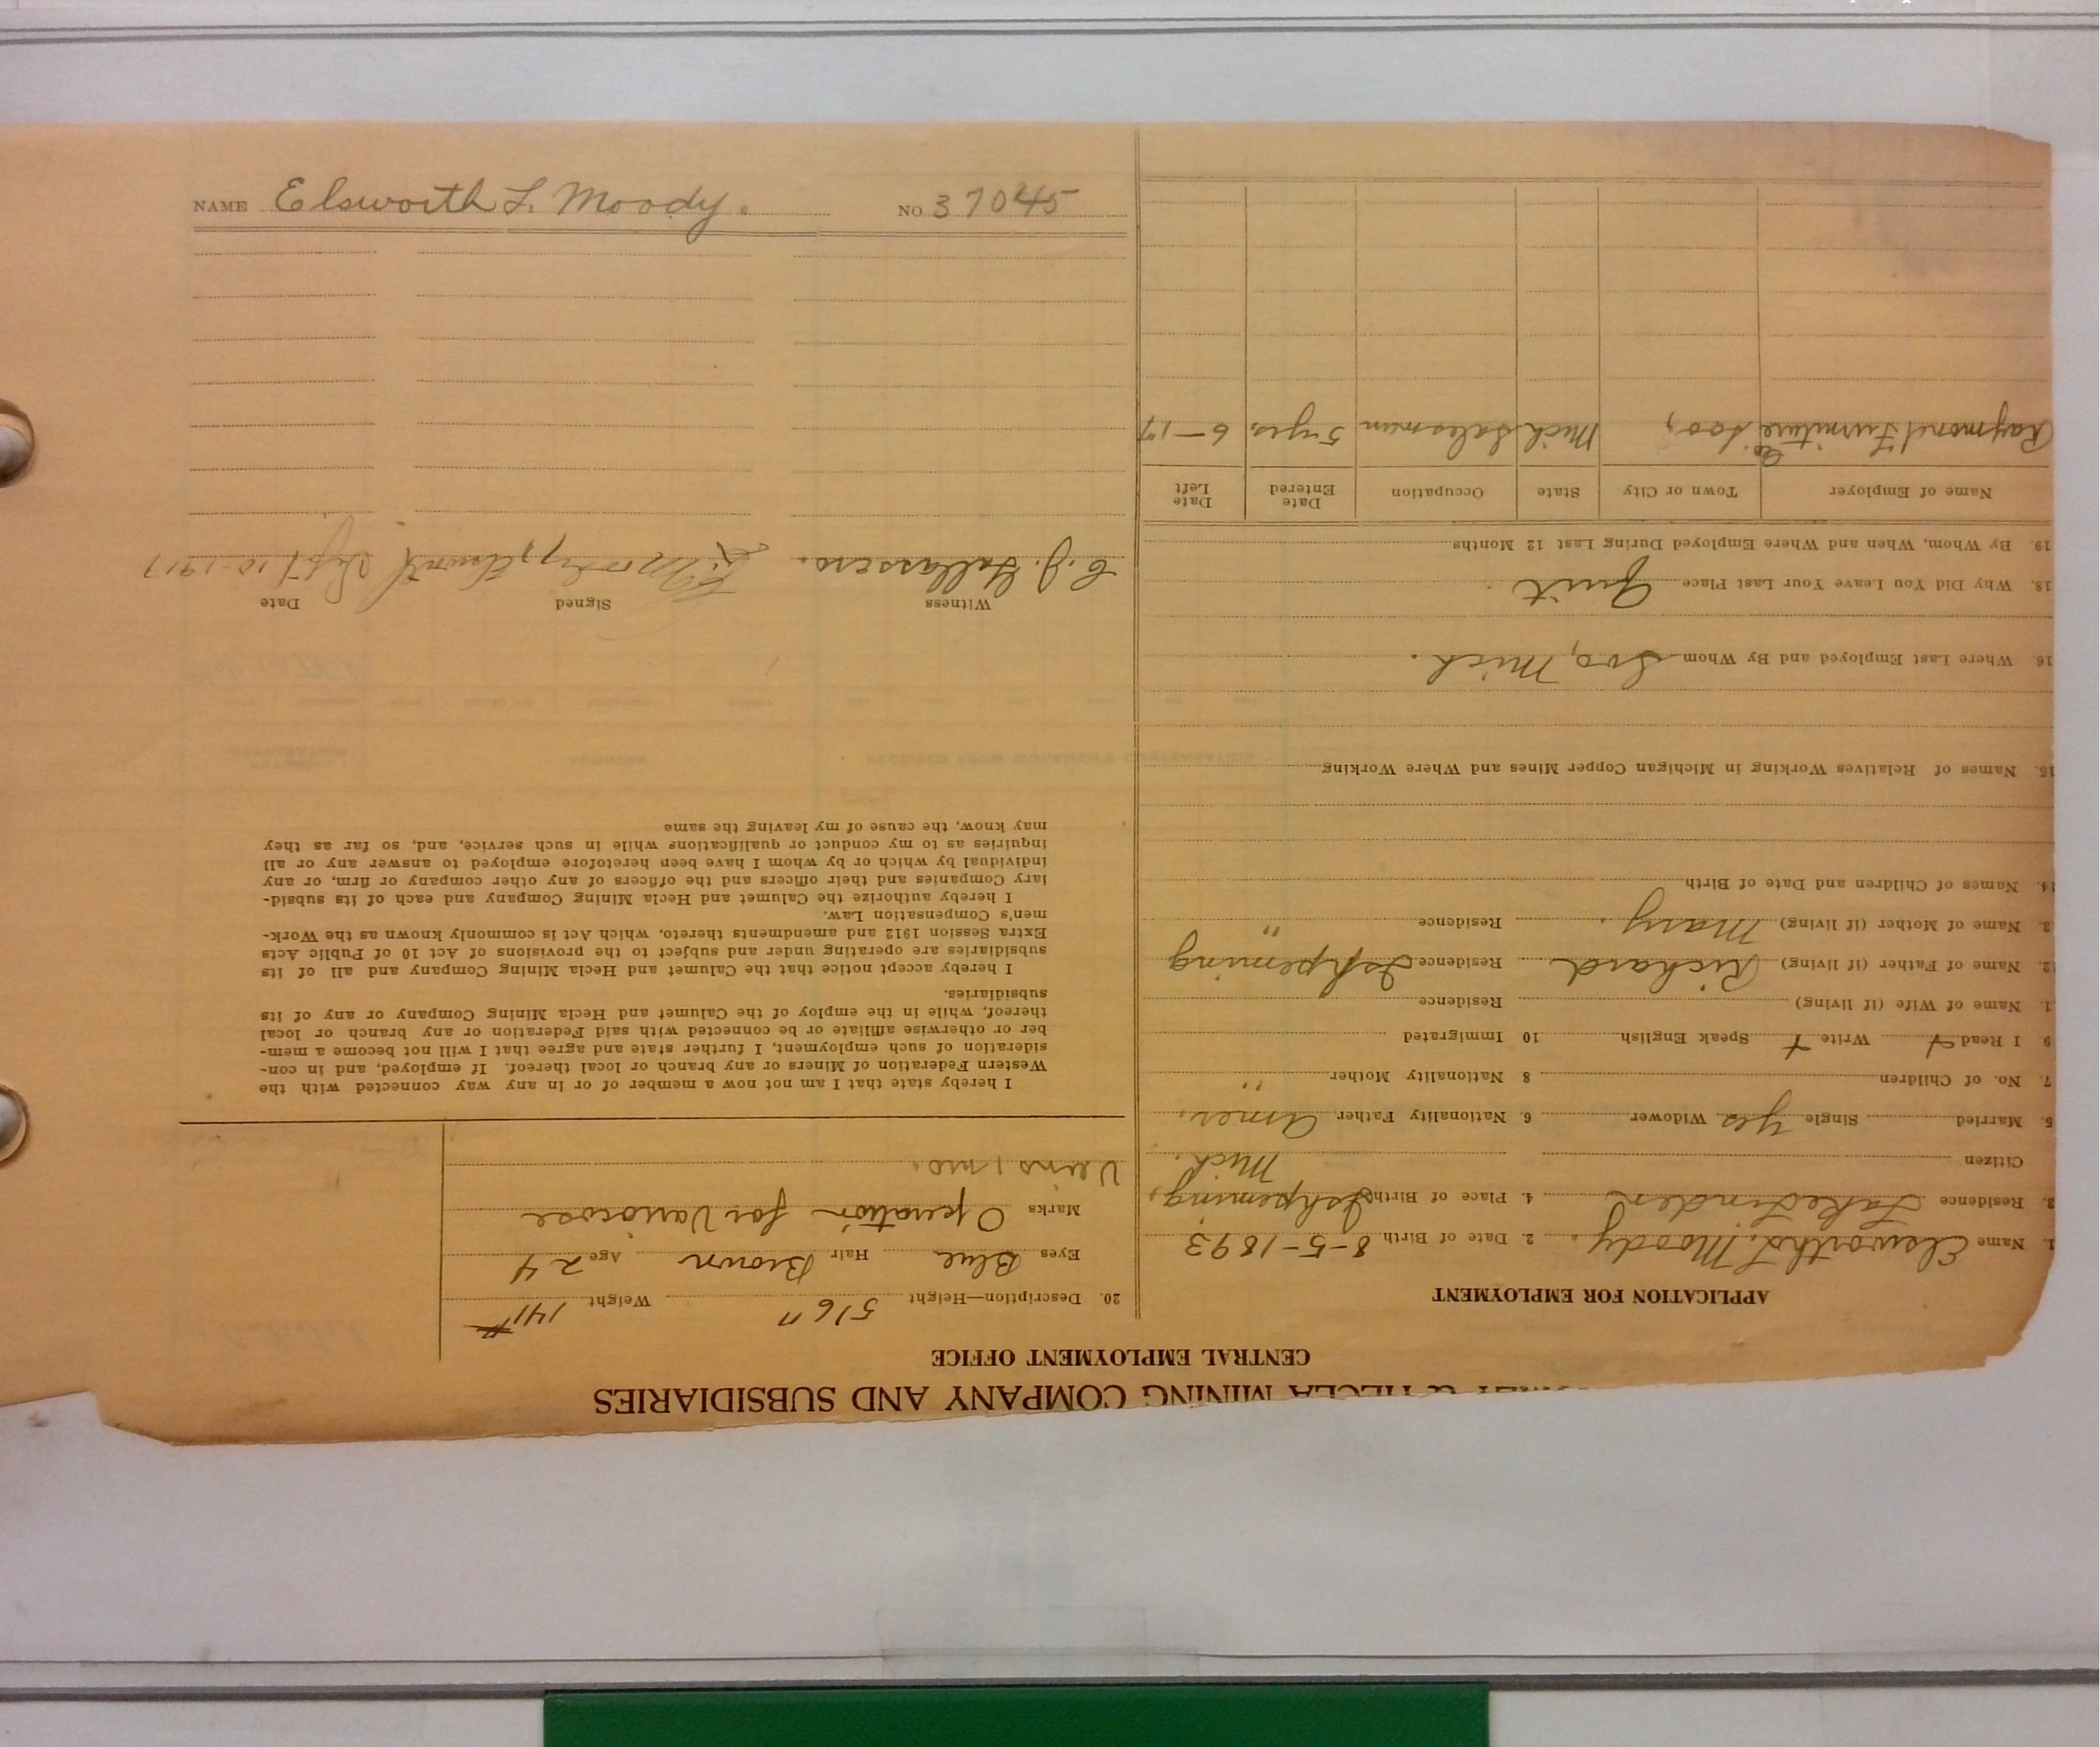 NAME Elsworth L. Moody. NO. 37045
MINING COMPANY AND SUBSIDIARIES
CENTRAL EMPLOYMENT OFFICE
APPLICATION FOR EMPLOYMENT
1. Name Elsworth L. Moody. 2. Date of Birth 8-5-1893
3. Residence Lake Linden 4. Place of Birth Ishpeming,
Citizen Mich.
5. Married Single Yes Widower 6. Nationality Father Amer.
7. No. of Children 8 Nationality Mother "
9 I Read + Write + Speak English 10 Immigrated
1. Name of Wife (if living) Residence
2. Name of Father (if living) Richard Residence Ishpeming
3. Name of Mother (if living) Mary. Residence "
14. Names of Children and Date of Birth
15. Names of Relatives Working in Michigan Copper Mines and Where Working
16. Where Last Employed and By Whom Soo, Mich.
18. Why Did You Leave Your Last Place Quit
19. By Whom, When and Where Employed During Last 12 Months
Name of Employer Town or City State Occupation Date Entered Date Left
Raymond Furniture Co. Soo, Mich Salesman 5 yrs. 6-17
20. Description—Height 5'6" Weight 141#
Eyes Blue Hair Brown Age 24
Marks Operation for Varicose
Veins,
I hereby state that I am not now a member of or in any way connected with the
Western Federation of Miners or any branch or local thereof. If employed, and in con-
sideration of such employment, I further state and agree that I will not become a mem-
ber or otherwise affiliate or be connected with said Federation or any branch or local
thereof, while in the employ of the Calumet and Hecla Mining Company or any of its
subsidiaries.
I hereby accept notice that the Calumet and Hecla Mining Company and all of its
subsidiaries are operating under and subject to the provisions of Act 10 of Public Acts
Extra Session 1912 and amendments thereto, which Act is commonly known as the Work-
men's Compensation Law.
I hereby authorize the Calumet and Hecla Mining Company and each of its subsid-
iary Companies and their officers and the officers of any other company or firm, or any
individual by which or by whom I have been heretofore employed to answer any or all
inquiries as to my conduct or qualifications while in such service, and, so far as they
may know, the cause of my leaving the same
Witness Signed Date
L. Moody, Elsworth Sept 10-1917